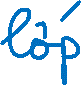 lớp